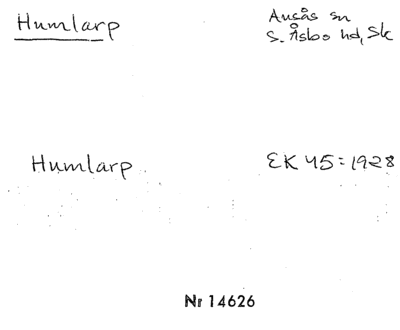 Humlarp
Ausås sn
S. Åsbo hd, Sk
Humlarp
EK 45:1928
Nr 14626